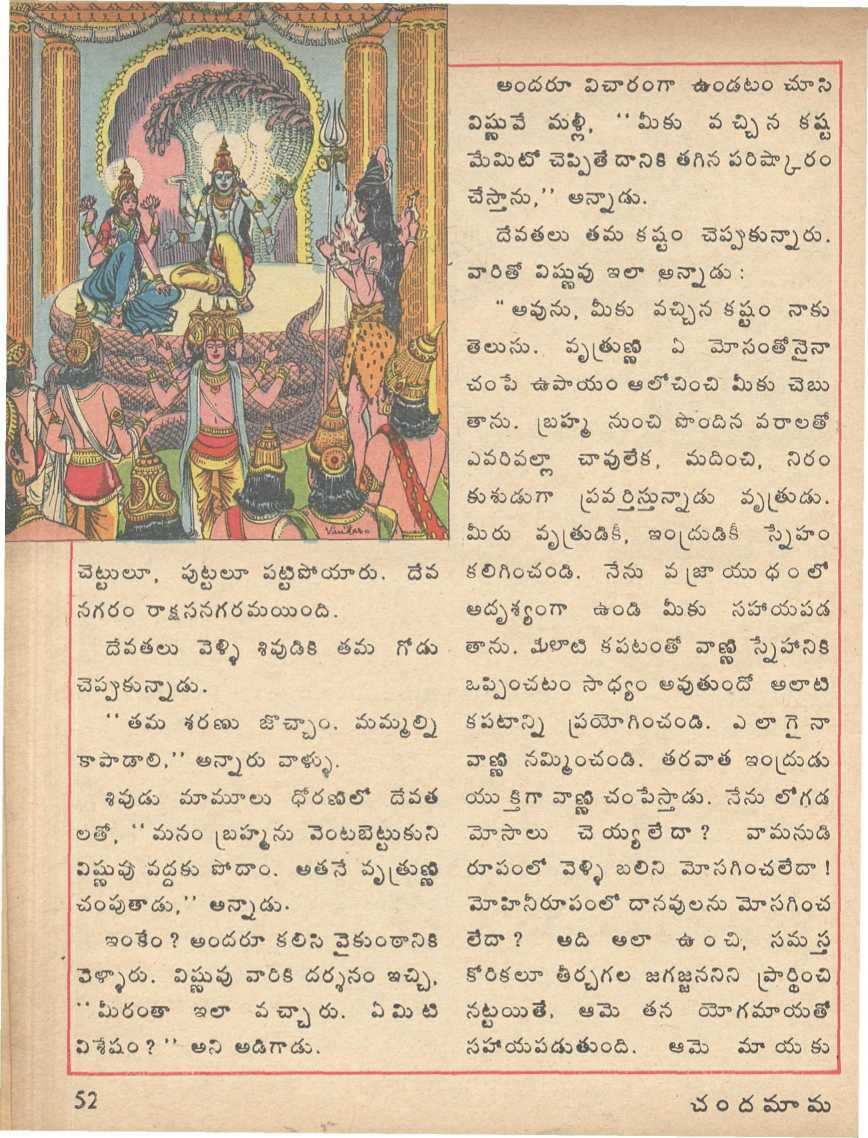 చెట్టులూ, పుట్టలూ పట్టిపోయారు. దేవ
నగరం రాక్షసనగరమయింది.
దేవతలు వెళ్ళి శివుడికి తమ గోడు
చెప్పుకున్నాడు.
‘‘తమ శరణు జొచ్చాం. మమ్మల్ని
కాపాడాలి,’’ అన్నారు వాళ్ళు.
శివుడు మామూలు ధోరణిలో దేవత
లతో, ‘‘మనం బ్రహ్మను వెంటబెట్టుకుని
విష్ణువు వద్దకు పోదాం. అతనే వృత్రుణ్ణి
చంపుతాడు,’’ అన్నాడు.
ఇంకేం? అందరూ కలిసి వైకుంఠానికి
వెళ్ళారు. విష్ణువు వారికి దర్శనం ఇచ్చి,
‘‘మీరంతా ఇలా వచ్చారు. ఏమిటి
విశేషం?’’ అని అడిగాడు.
అందరూ విచారంగా ఉండటం చూసి
విష్ణువే మళ్ళీ, ‘‘మీకు వచ్చిన కష్ట
మేమిటో చెప్పితే దానికి తగిన పరిష్కారం
చేస్తాను,’’ అన్నాడు.
దేవతలు తమ కష్టం చెప్పుకున్నారు.
వారితో విష్ణువు ఇలా అన్నాడు:
‘‘అవును, మీకు వచ్చిన కష్టం నాకు
తెలుసు. వృత్రుణ్ణి ఏ మోసంతోనైనా
చంపే ఉపాయం ఆలోచించి మీకు చెబు
తాను. బ్రహ్మ నుంచి పొందిన వరాలతో
ఎవరివల్లా చావులేక, మదించి, నిరం
కుశుడుగా ప్రవర్తిస్తున్నాడు వృత్రుడు.
మీరు వృత్రుడికీ, ఇంద్రుడికీ స్నేహం
కలిగించండి. నేను వజ్రాయుధంలో
అదృశ్యంగా ఉండి మీకు సహాయపడ
తాను. ఏలాటి కపటంతో వాణ్ణి స్నేహానికి
ఒప్పించటం సాధ్యం అవుతుందో అలాటి
కపటాన్ని ప్రయోగించండి. ఎలాగైనా
వాణ్ణి నమ్మించండి. తరవాత ఇంద్రుడు
యుక్తిగా వాణ్ణి చంపేస్తాడు. నేను లోగడ
మోసాలు చెయ్యలేదా? వామనుడి
రూపంలో వెళ్ళి బలిని మోసగించలేదా!
మోహినీరూపంలో దానవులను మోసగించ
లేదా? అది అలా ఉంచి, సమస్త
కోరికలూ తీర్చగల జగజ్జననిని ప్రార్థించి
నట్టయితే, ఆమె తన యోగమాయతో
సహాయపడుతుంది. ఆమె మాయకు
52
చందమామ